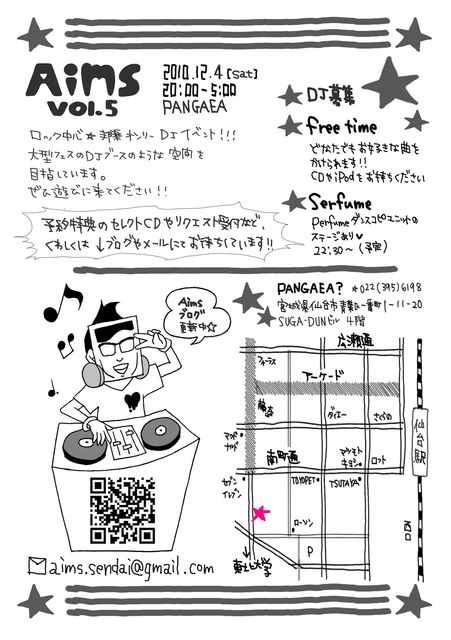 Aims
VOL.5
2010.12.4 [sat]
20:00-5:00
PANGAEA
ロック中心★邦楽オンリーDJイベント!!!
大型フェスのDJブースのような空間を
目指しています。
ぜひ遊びに来てください!!
予約特典のセレクトCDやリクエスト受付など、
くわしくは↓ブログやメールにてお待ちしています!!
DJ募集
free time
どなたでもお好きな曲を
かけられます!!
CDやiPodをお持ちください
Serfume
Perfumeダンスコピユニットの
ステージあり♥
22:30〜(予定)
Aims
ブログ
更新中☆
aims.sendai@gmail.com
PANGAEA? *022(395)6198
宮城県仙台市青葉区一番町1-11-20
SUGA-DUNビル 4階
広瀬通
フォーラス
アーケード
藤崎
ダイエー
さくらの
仙台駅
マクド
ナルド
南町通
マツモト
キヨシ
ロフト
セブン
イレブン
TOYOPET
TSUTAYA
ローソン
P
西口
東北大学